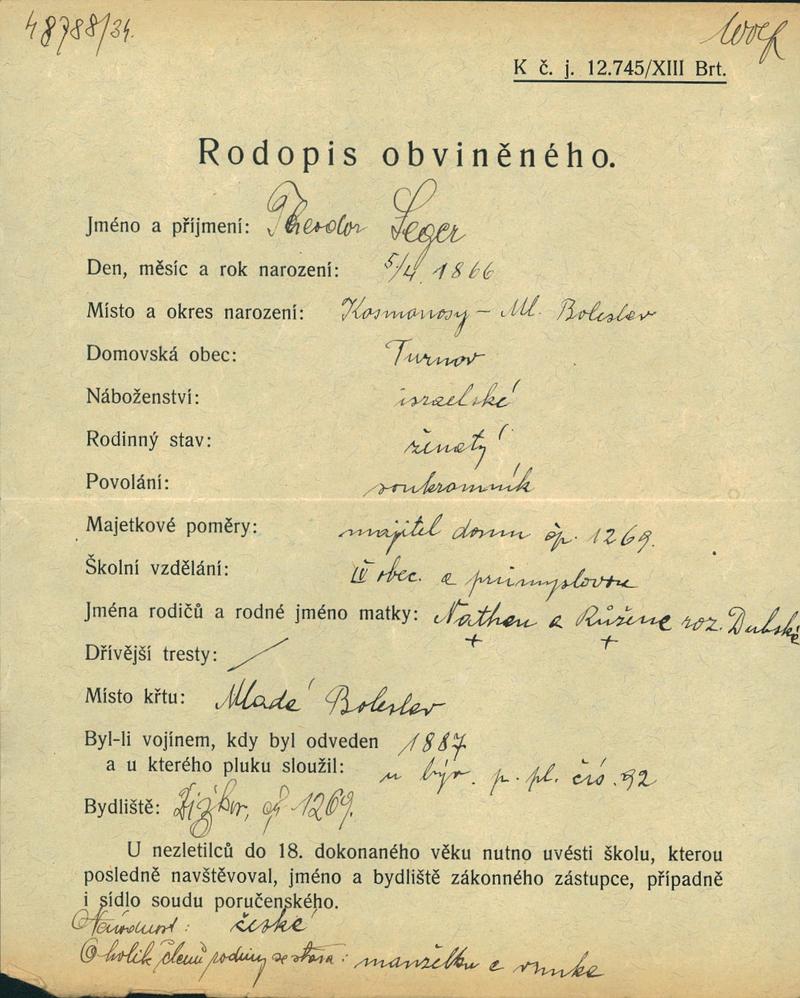 48788/34.
Wolf
K č. j. 12.745/XIII Brt.
Rodopis obviněného.
Jméno a příjmení: Theodor Seger
Den, měsíc a rok narození: 5/4 1866
Místo a okres narození: Kosmonosy – Ml. Boleslav
Domovská obec: Turnov
Náboženství: israelské
Rodinný stav: ženatý
Povolání: soukromník
Majetkové poměry: majitel domu čp. 1269.
Školní vzdělání: IV obec. a průmyslovou
Jména rodičů a rodné jméno matky: Nathan a Růžena roz. Dubská
+ +
Dřívější tresty: /
Místo křtu: Mladá Boleslav
Byl-li vojínem, kdy byl odveden 1887
a u kterého pluku sloužil: u býv. p. pl. čís. 92
Bydliště: Žižkov, čp 1269.
U nezletilců do 18. dokonaného věku nutno uvésti školu, kterou
posledně navštěvoval, jméno a bydliště zákonného zástupce, případně
i sídlo soudu poručenského.
Národnost: česká
O kolik členů rodiny se stará: manželku a vnuka